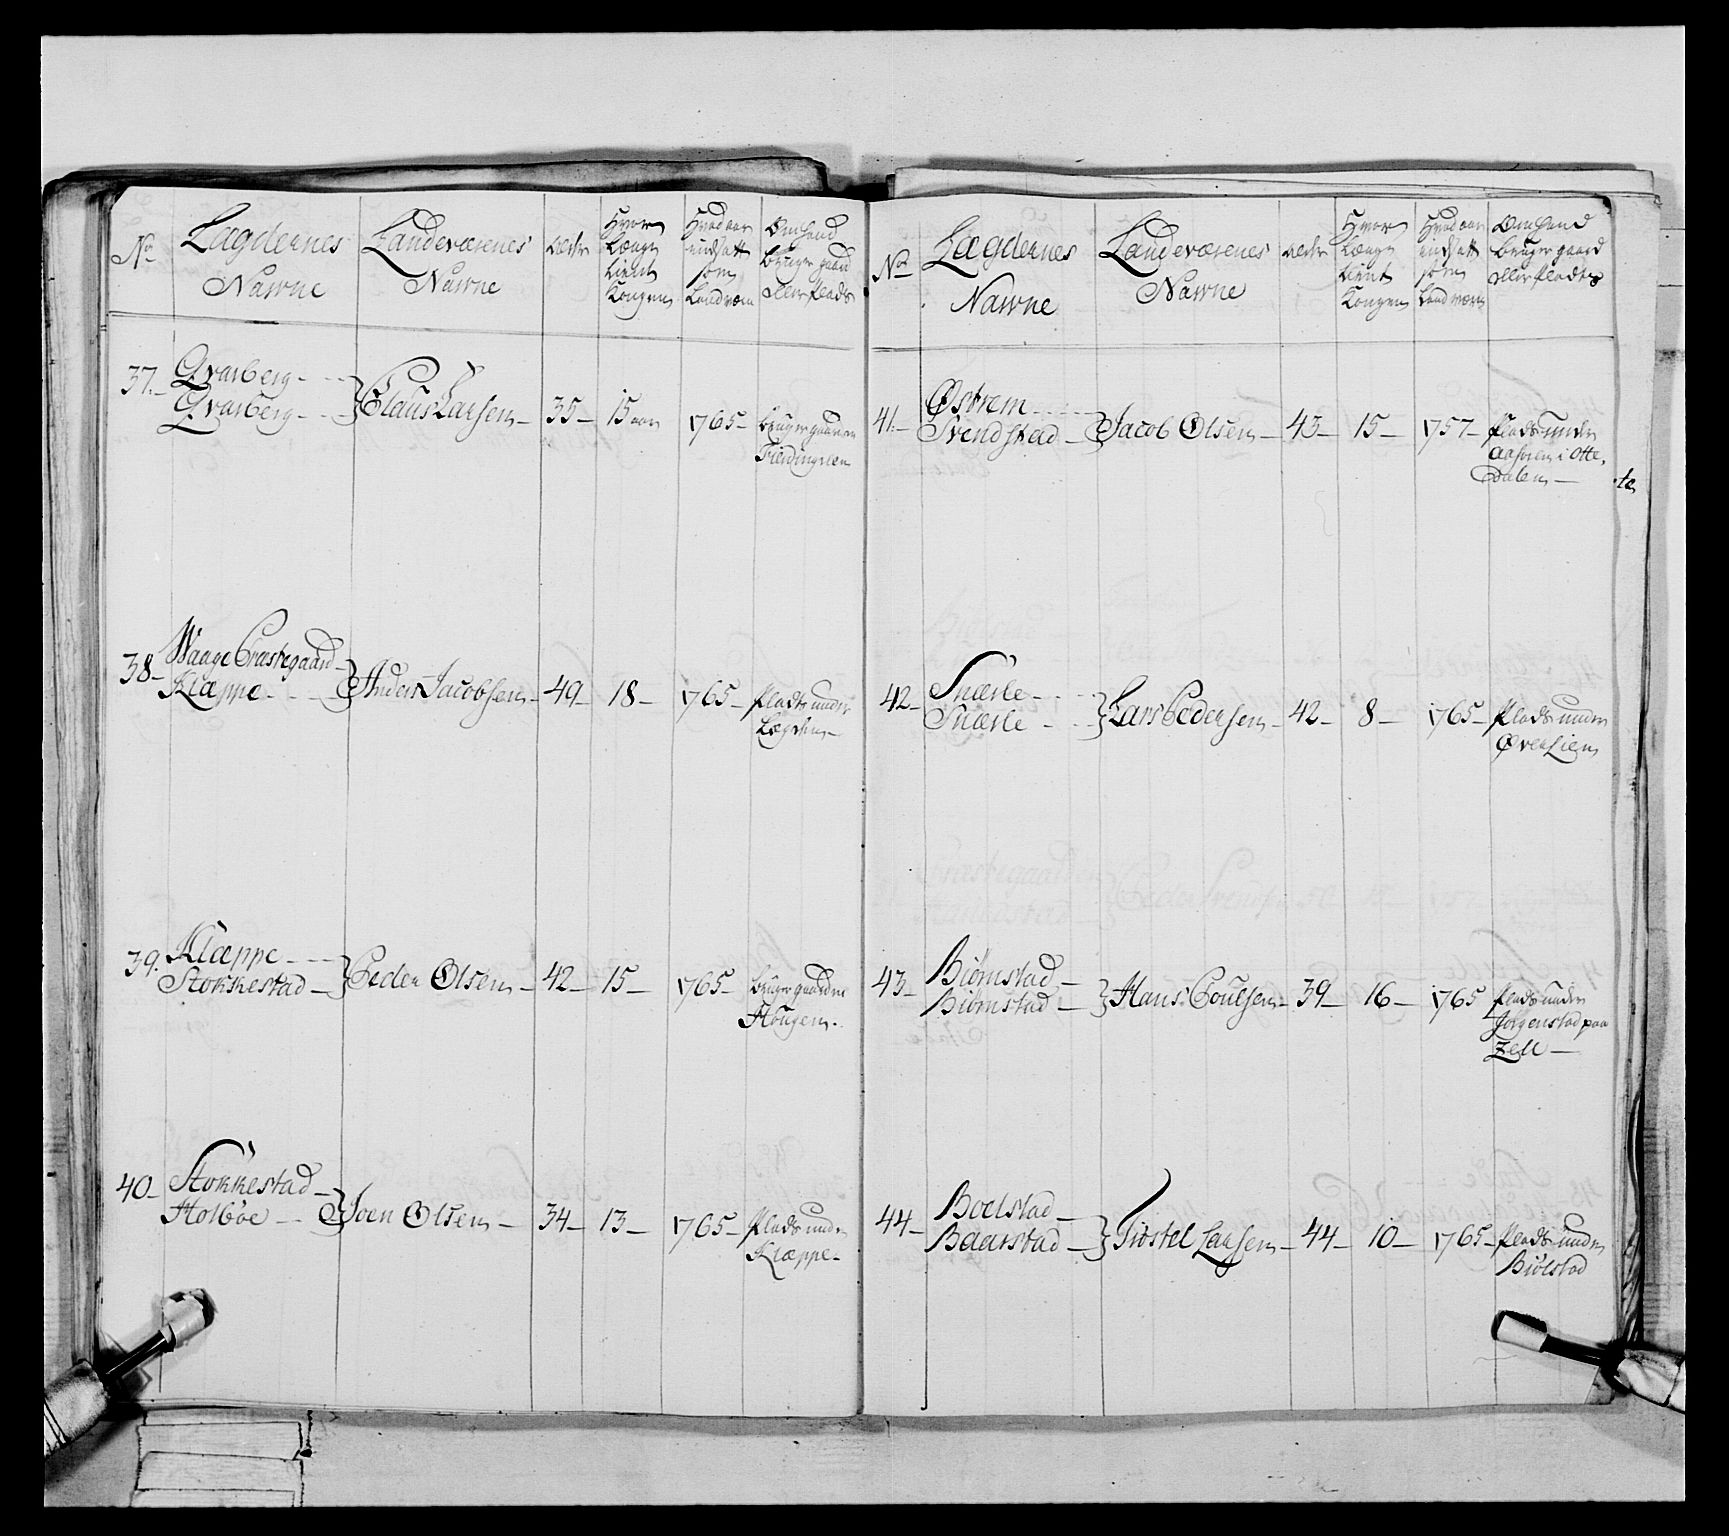 No
Lægdernes
Navne
Landeværenes
Navne
Alder
Hvor
Længe
tient
Kongen
Hvad aar
indsatt
som
Landværn
Om hand
bruger gaard
eller Plads
37.
Qvarberg
Qvarberg
Claus Larsen
35
15 aar
1765
bruger gaarden
38
Waage Præstegaard
Klæppe
Anders Jacobsen
49
18
1765
Plads under
Lægden
39.
Klæppe
Stokkestad
Peder Olsen
42
15
1765
bruger gaarden
Hougen
40
Stokkestad
Holböe
Joen Olsen
34
13
1765
Plads under
Klæppe
No
Lægdernes
Navne
Landeværenes
Navne
Alder
Hvor
Længe
tient
Kongen
Hvad aar
indsatt
som
Landværn
Om hand
bruger gaard
eller Plads
41.
Østrem
Svendstad
Jacob Olsen
43
15
1757
Plads under
i Otte
Dalen
42
Snærle
Snærle
Lars Pedersen
42
8
1765
Plads under
Øver Lien
43
Biørnstad
Biørnstad
Hans Poulsen
39
16
1765
Plads under
Jørgenstad paa
Zell
44
Boelstad
Baarstad
Tröstel Larsen
44
10
1765
Plads under
Biölstad